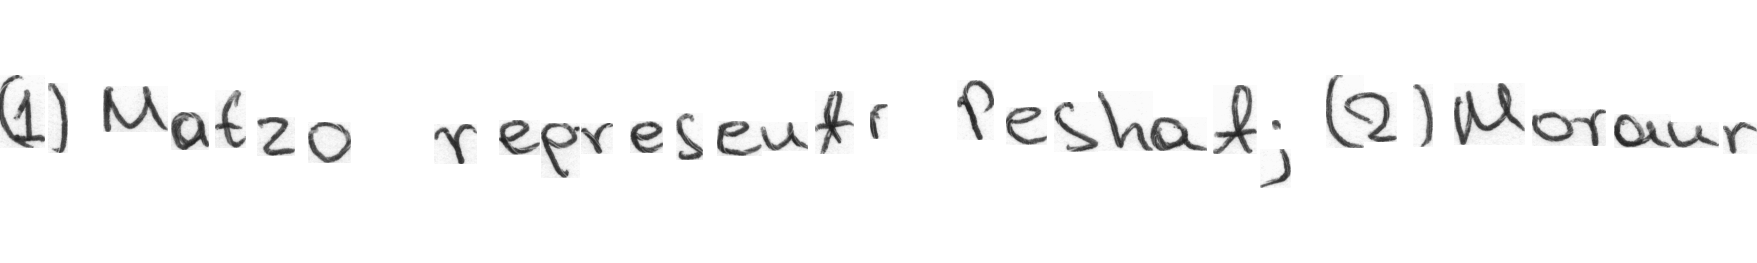 (1) Matzo represents Peshat; (2) Moraur